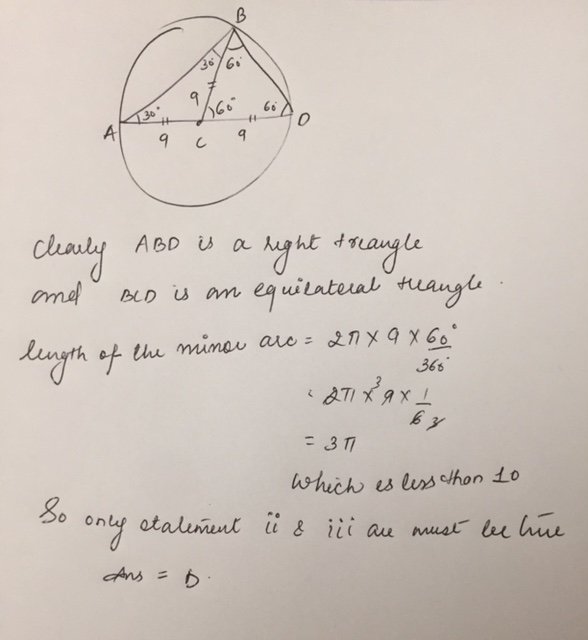 B
30° 60°
9 60° 60°
A 30° D
9 C 9
Clearly ABD is a right triangle
and BCD is an equilateral triangle.
length of the minor arc = 2π × 9 × 60°/360°
= 2π × 9 3 × 1/6 3
= 3π
Which is less than 10
So only statement ii & iii are must be true
Ans = D.